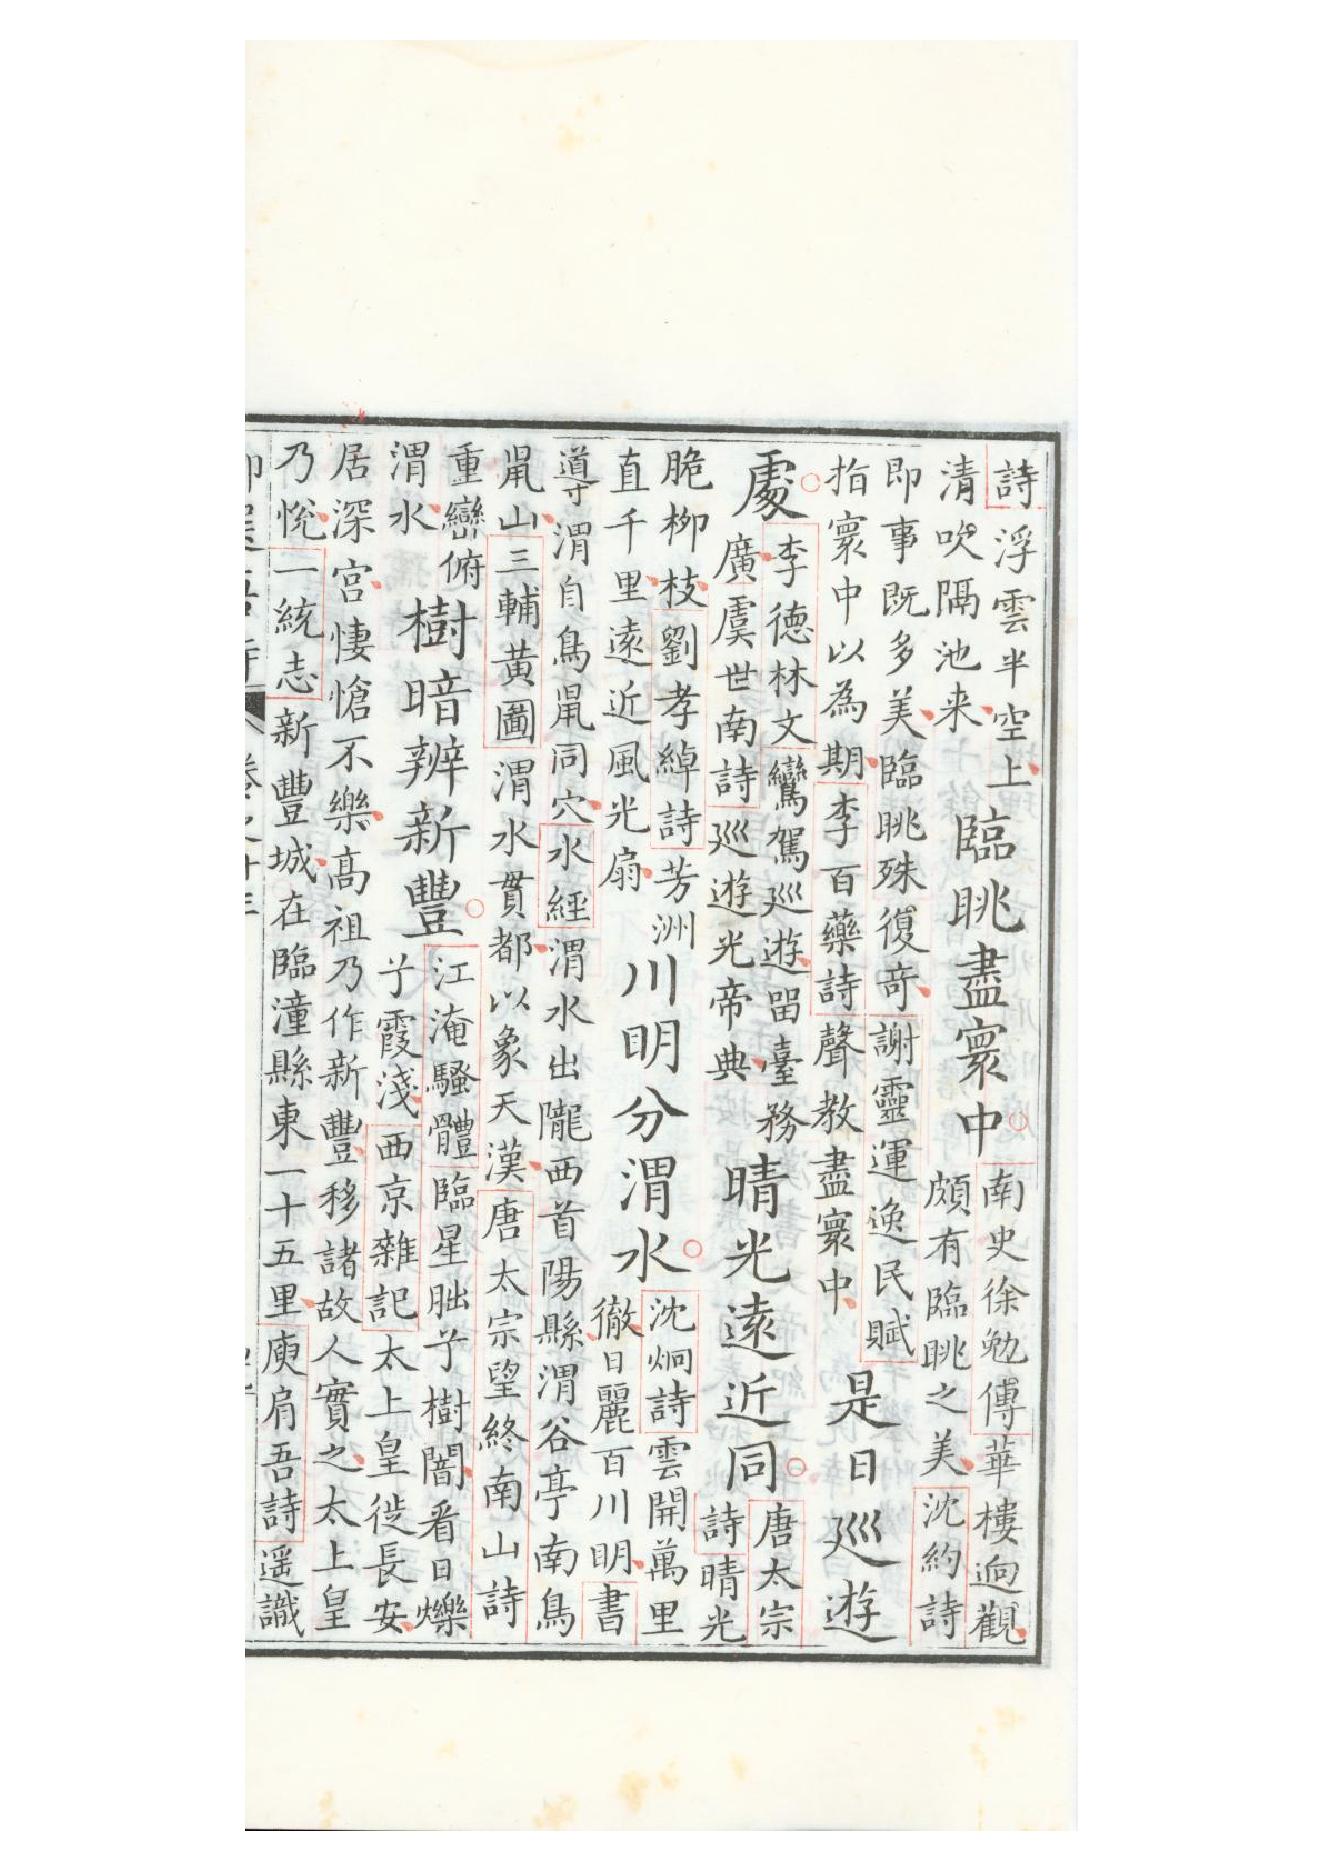 詩浮雲半空上
清吹隔池来
臨眺盡寰中
南史徐勉傳華樓迥觀
頗有臨眺之美沈約詩
即事既多美臨眺殊復竒謝靈運逸民賦
指寰中以為期李百藥詩聲教盡寰中
是日巡遊
處
李德林文鸞駕巡遊畱臺務
廣虞世南詩巡遊光帝典
晴光遠近同
唐太宗
詩晴光
脆栁枝劉孝綽詩芳洲
直千里遠近風光扇
川明分渭水
沈炯詩雲開萬里
徹日麗百川明書
導渭自鳥鼠同穴水經渭水出隴西首陽縣渭谷亭南鳥
鼠山三輔黃圖渭水貫都以象天漢唐太宗望終南山詩
重巒俯
渭水
樹暗辨新豐
江淹騷體臨星朏兮樹闇看日爍
兮霞淺西京雜記太上皇徙長安
居深宮悽愴不樂高祖乃作新豐移諸故人實之太上皇
乃悅一統志新豐城在臨潼縣東一十五里庾肩吾詩遥識